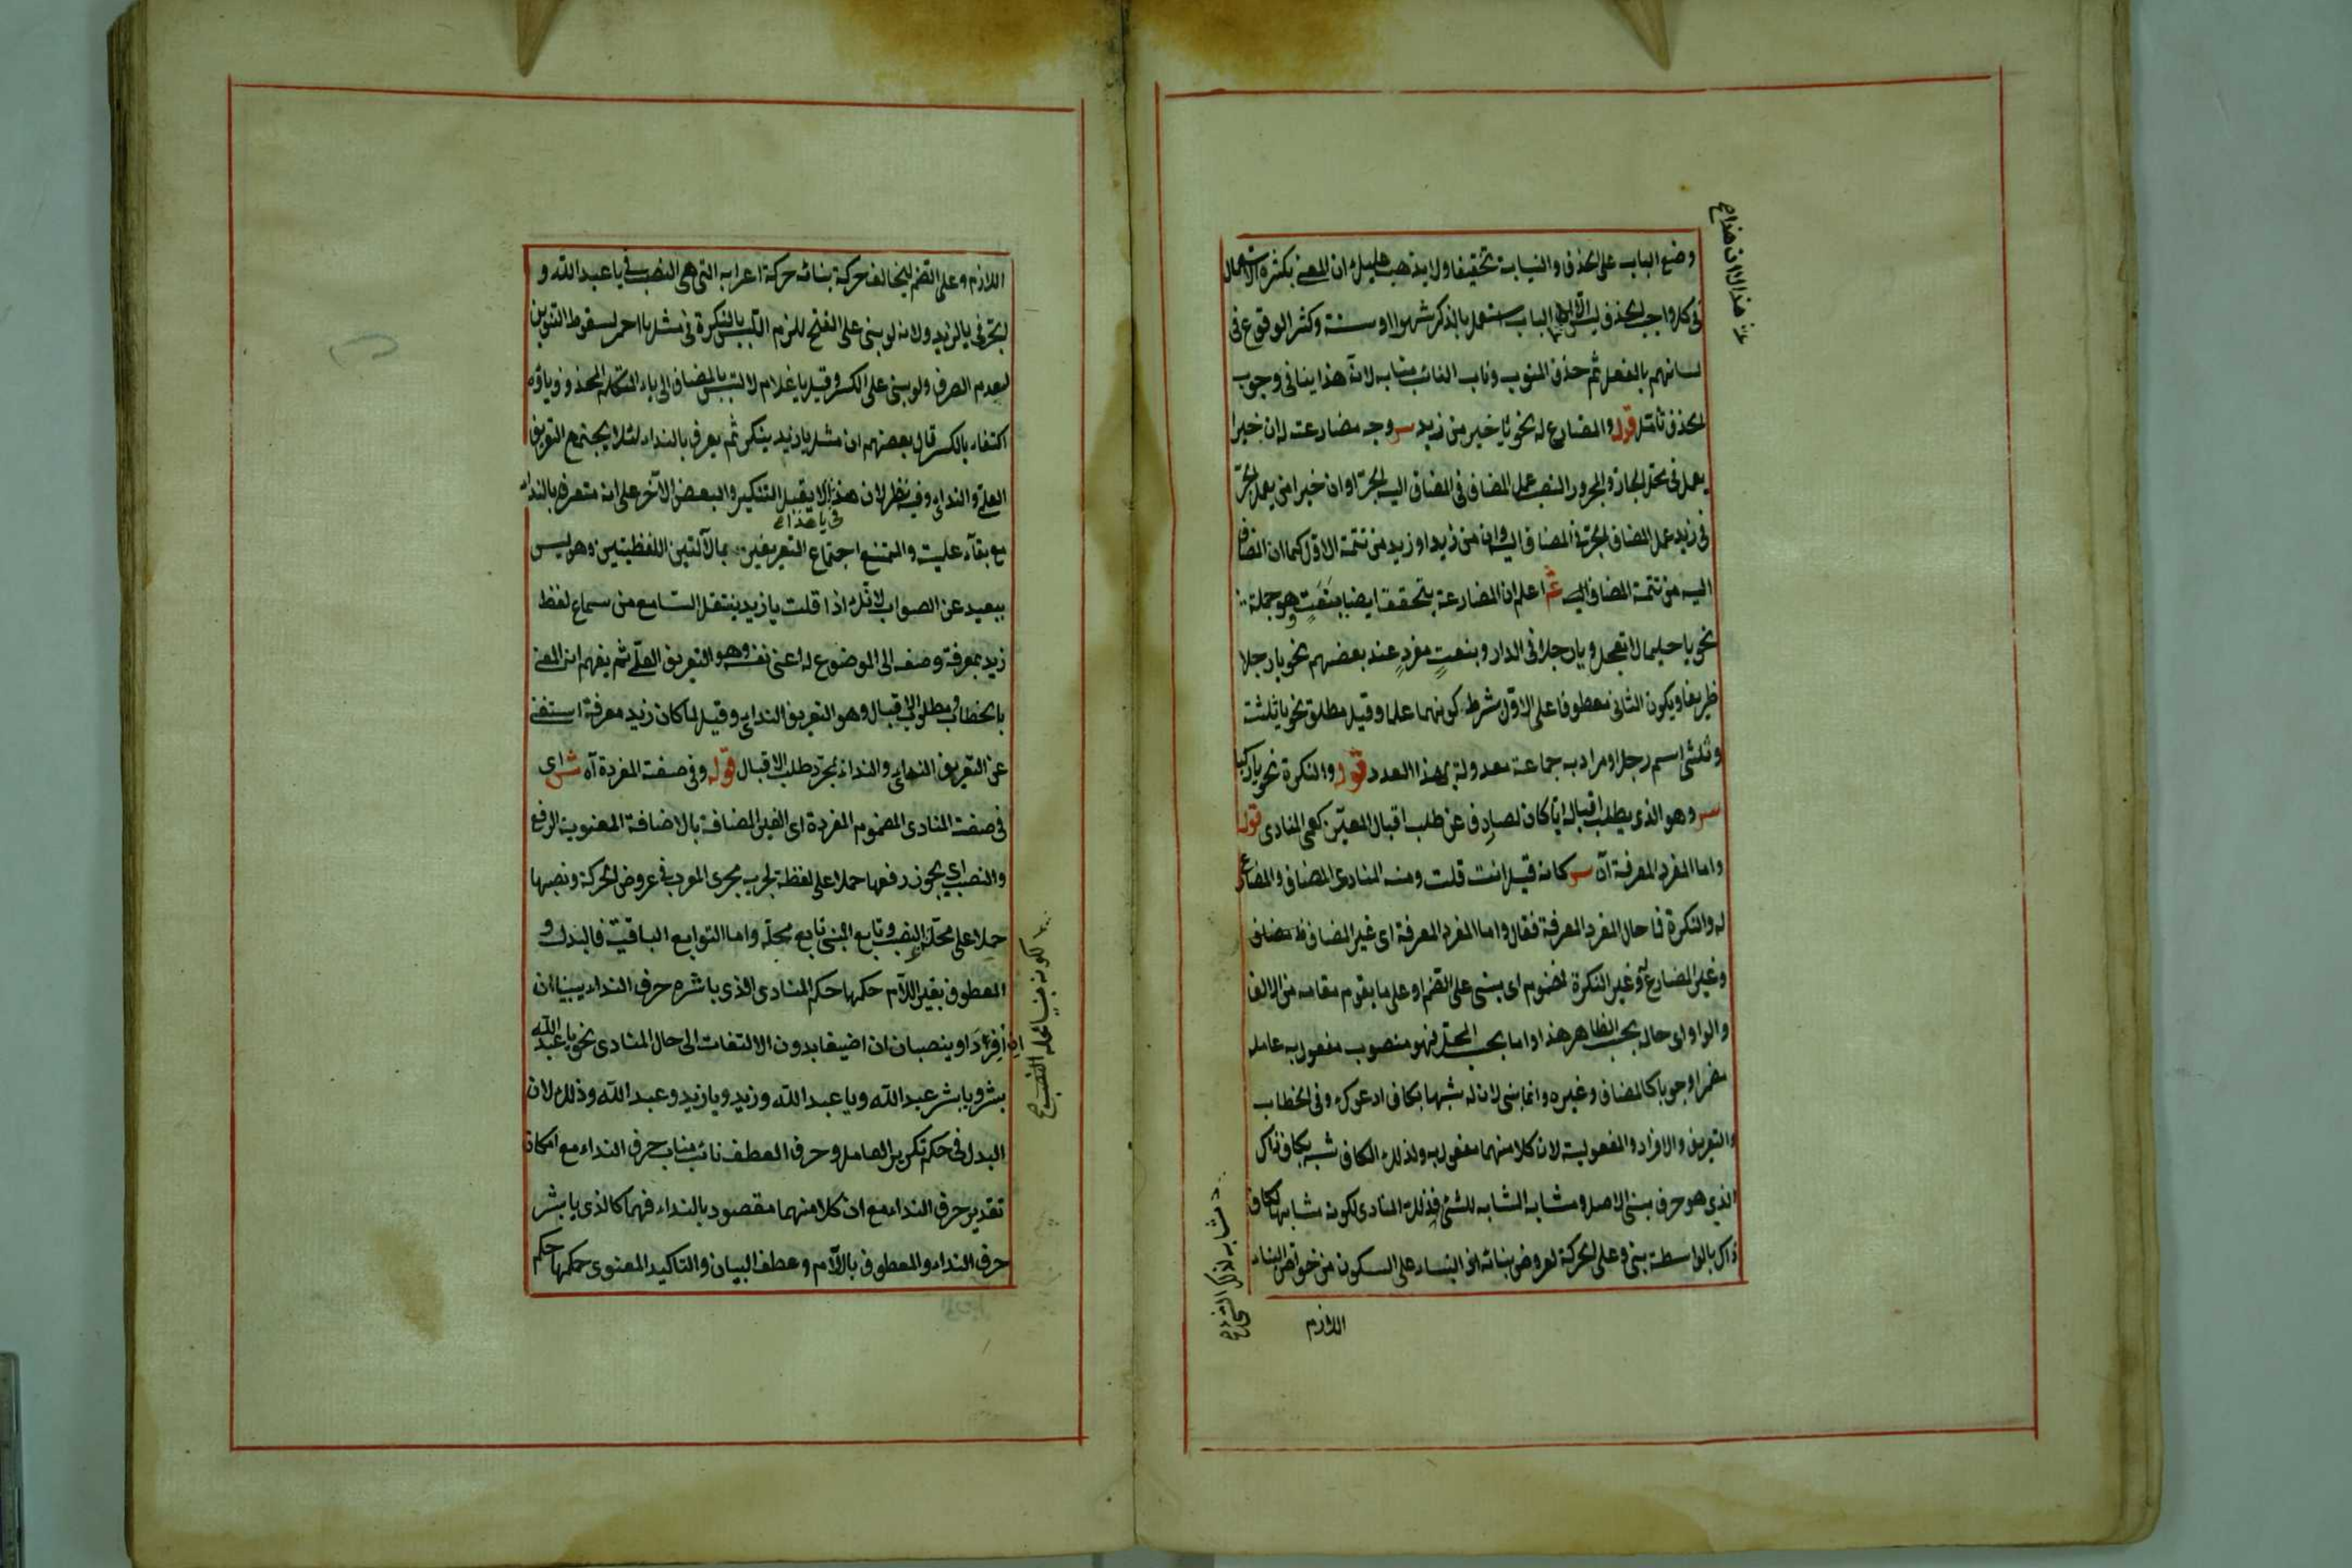 وضع الباب على الحذف والنيابة تخفيفا ولا يذهب عليك ان المعنى بكثرة الاستعمال
في كل واجب الحذف ليس الباب استعمل بالذكر شهرا او سنة وكثر الوقوع في
لسانهم بالفعل ثم حذف المنوب وناب النائب منابه لان هذا ينافي وجوب
الحذف تأمل قوله والمضارع له نحو يا خيرا من زيد سر وجه مضارعته له ان خيرا
يعمل في محل الجار والمجرور النصب عمل المضاف في المضاف اليه الجر او ان خيرا من يعمل الجر
في زيد عمل المضاف الجر في المضاف اليه وان من زيد او زيد من تتمة الاول كما ان المضاف
اليه من تتمة المضاف اليه ثم اعلم ان المضارعة يتحقق ايضا بنعت هو جملة
نحو يا حليما لا تعجل ويا رجلا في الدار وبنعت مفرد عند بعضهم نحو يا رجلا
ظريفا ويكون الثاني معطوفا على الاول بشرط كونهما علما وقيل مطلق نحو يا ثلثة
وثلثين اسم رجل او مراد به جماعة معدولة بهذا العدد قوله والنكرة نحو يا راكبا
سر وهو الذي يطلب اقباله ايا كان لصارف عن طلب اقبال المعين كعمى المنادي قوله
واما المفرد المعرفة آه سر كانه قيل انت قلت ومنه المنادى المضاف والمضارع
له والنكرة فما حال المفرد المعرفة فقال واما المفرد المعرفة اى غير المضاف
وغير المضارع له وغير النكرة لمضموم اى يبنى على الضم او على ما يقوم مقامه من الالف
والواو اى حاله بحسب الظاهر هذا واما بحسب المحل فهو منصوب مفعول به عامله
مضمرا وجوبا كالمضاف وغيره وانما بنى لان له شبها بكاف ادعوك وفى الخطاب
والتعريف والافراد والمفعولية لان كلا منهما مفعول به ولذلك الكاف شبه بكاف ذاك
الذي هو حرف مبنى الاصل ومشابه المشابه للشئ فذلك المنادى لكونه مشابها لكاف
ذاك بالواسطة بنى وعلى الحركة لعروض بنائه اذ البناء على السكون من خواص البناء
اللازم
اللازم وعلى الضم ليخالف حركة بنائه حركة اعرابه التى هى النصب في يا عبد الله و
الجر في يا لزيد ولانه لو بنى على الفتح للزم التلبس بالنكرة في مثل يا احمر لسقوط التنوين
لعدم الصرف ولو بنى على الكسر وقيل يا غلام لالتبس بالمضاف الى ياء المتكلم المحذوف ياؤه
اكتفاء بالكسر قال بعضهم ان مثل يا زيد ينكر ثم يعرف بالنداء لئلا يجتمع التعريف
العلمى والندائى وفيه نظر لان هذا لا يقبل التنكير والبعض الآخر على انه متعرف بالنداء
مع بقاء علميته والممتنع اجتماع التعريفين بما لآلتين اللفظيتين وهو ليس
ببعيد عن الصواب لانك اذا قلت يا زيد ينتقل السامع من سماع لفظ
زيد بمعرفة وصفه الى الموضوع له اعنى نفسه وهو التعريف العلمى ثم يفهم انه المعنى
بالخطاب ومطلوب الاقبال وهو التعريف الندائى وقيل لما كان زيد معرفة استغنى
عن التعريف الندائى والنداء لمجرد طلب الاقبال قوله وفى صفته المفردة آه ش اى
في صفة المنادى المضموم المفردة اى الغير المضافة بالاضافة المعنوية الرفع
والنصب اى يجوز رفعها حملا على لفظه لجريه مجرى المعرب في عروض الحركة ونصبها
حملا على محله النصب وتابع المبنى تابع محله واما التوابع الباقية فالبدل و
المعطوف بغير اللام حكمها حكم المنادى الذي باشره حرف النداء يبنيان ان
افردا وينصبان ان اضيفا بدون الالتفات الى حال المنادى نحو يا عبد الله
بشر ويا بشر عبد الله ويا عبد الله وزيد ويا زيد وعبد الله وذلك لان
البدل في حكم تكرير العامل وحرف العطف نائب مناب حرف النداء مع امكان
تقدير حرف النداء مع ان كلا منهما مقصود بالنداء فهما كالذي باشر
حرف النداء والمعطوف باللام وعطف البيان والتاكيد المعنوى حكمها حكم
لكونه مبنيا محله النصب